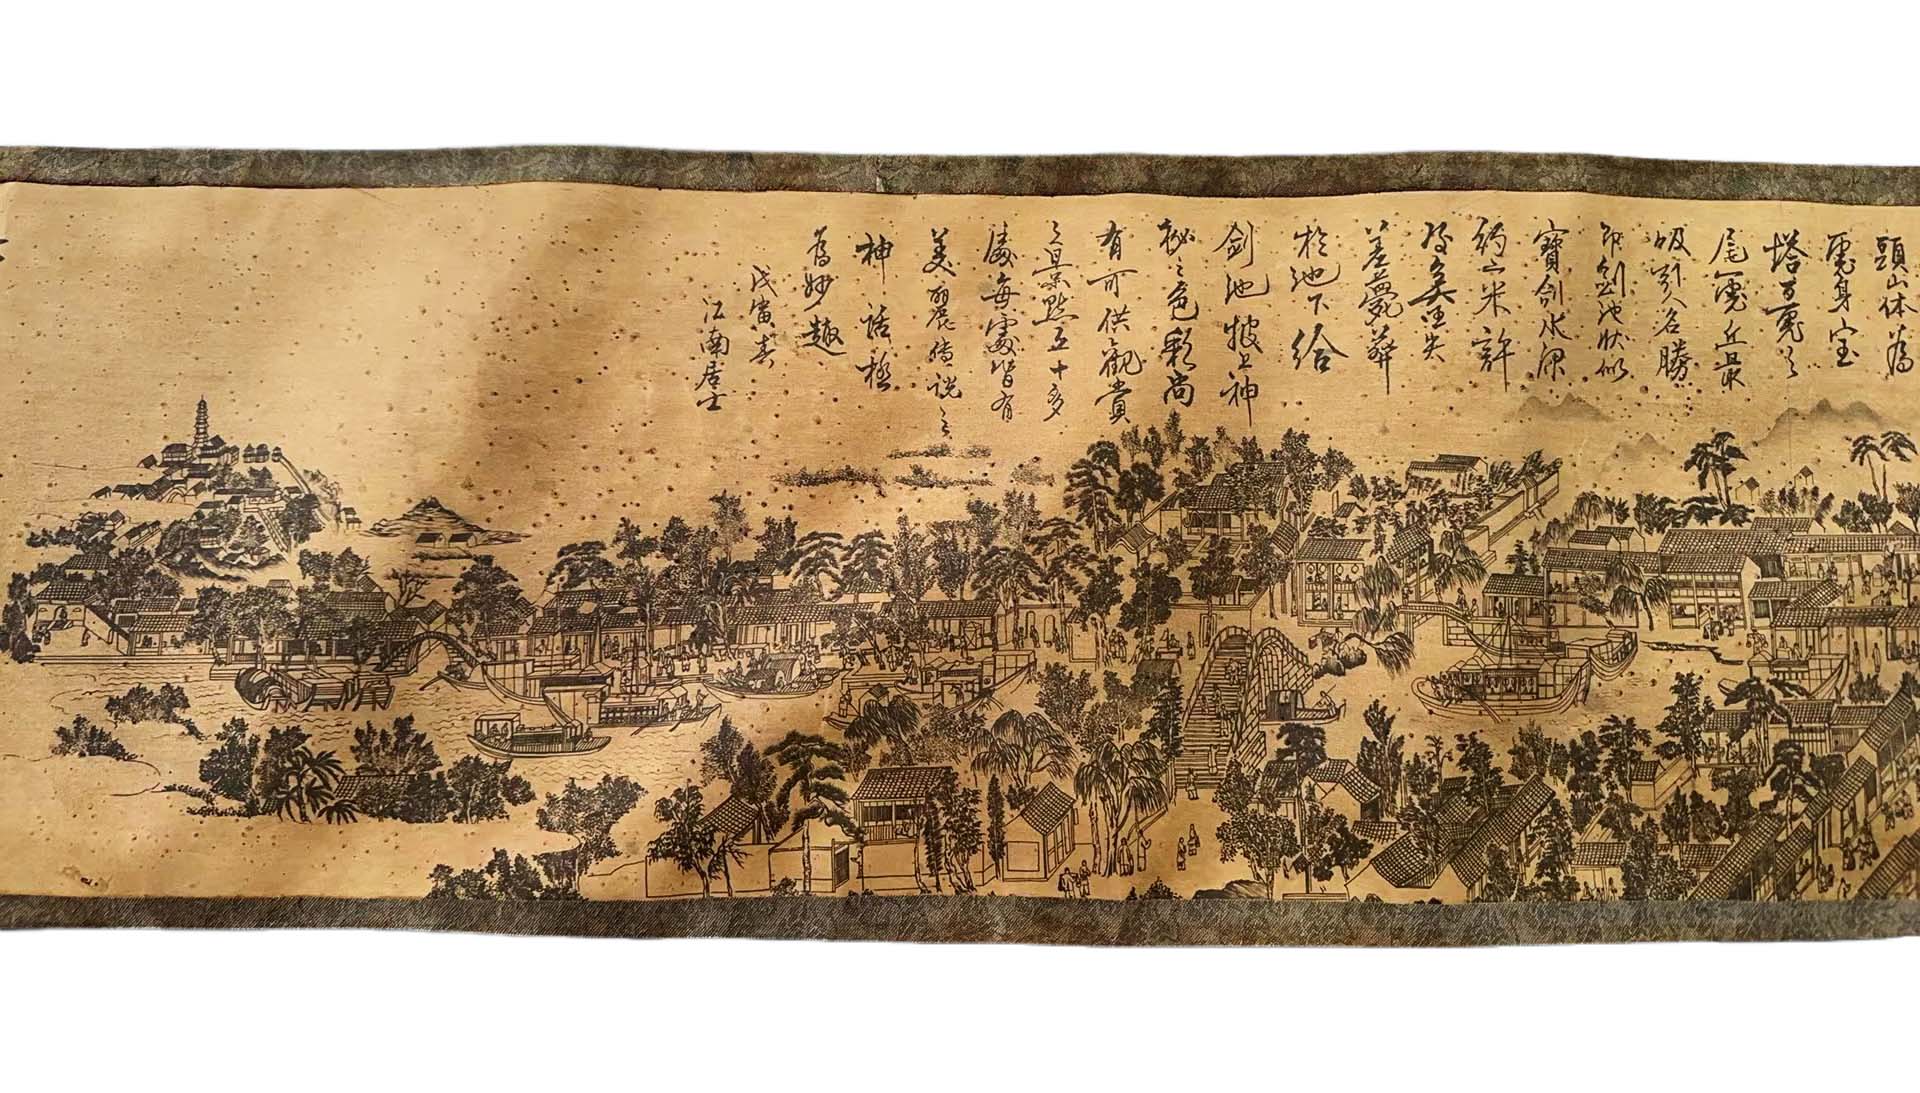 頭山体為
虎身宝
塔虎之
尾虎丘最
吸引人名勝
即劍池狀似
寶劍水深
約六米許
吳王夫
差薨葬
於池下給
劍池披上神
秘之色彩尚
有可供觀賞
之景點五十多
處每處皆有
美麗傳説之
神話極
為妙趣
戊寅春
江南居士